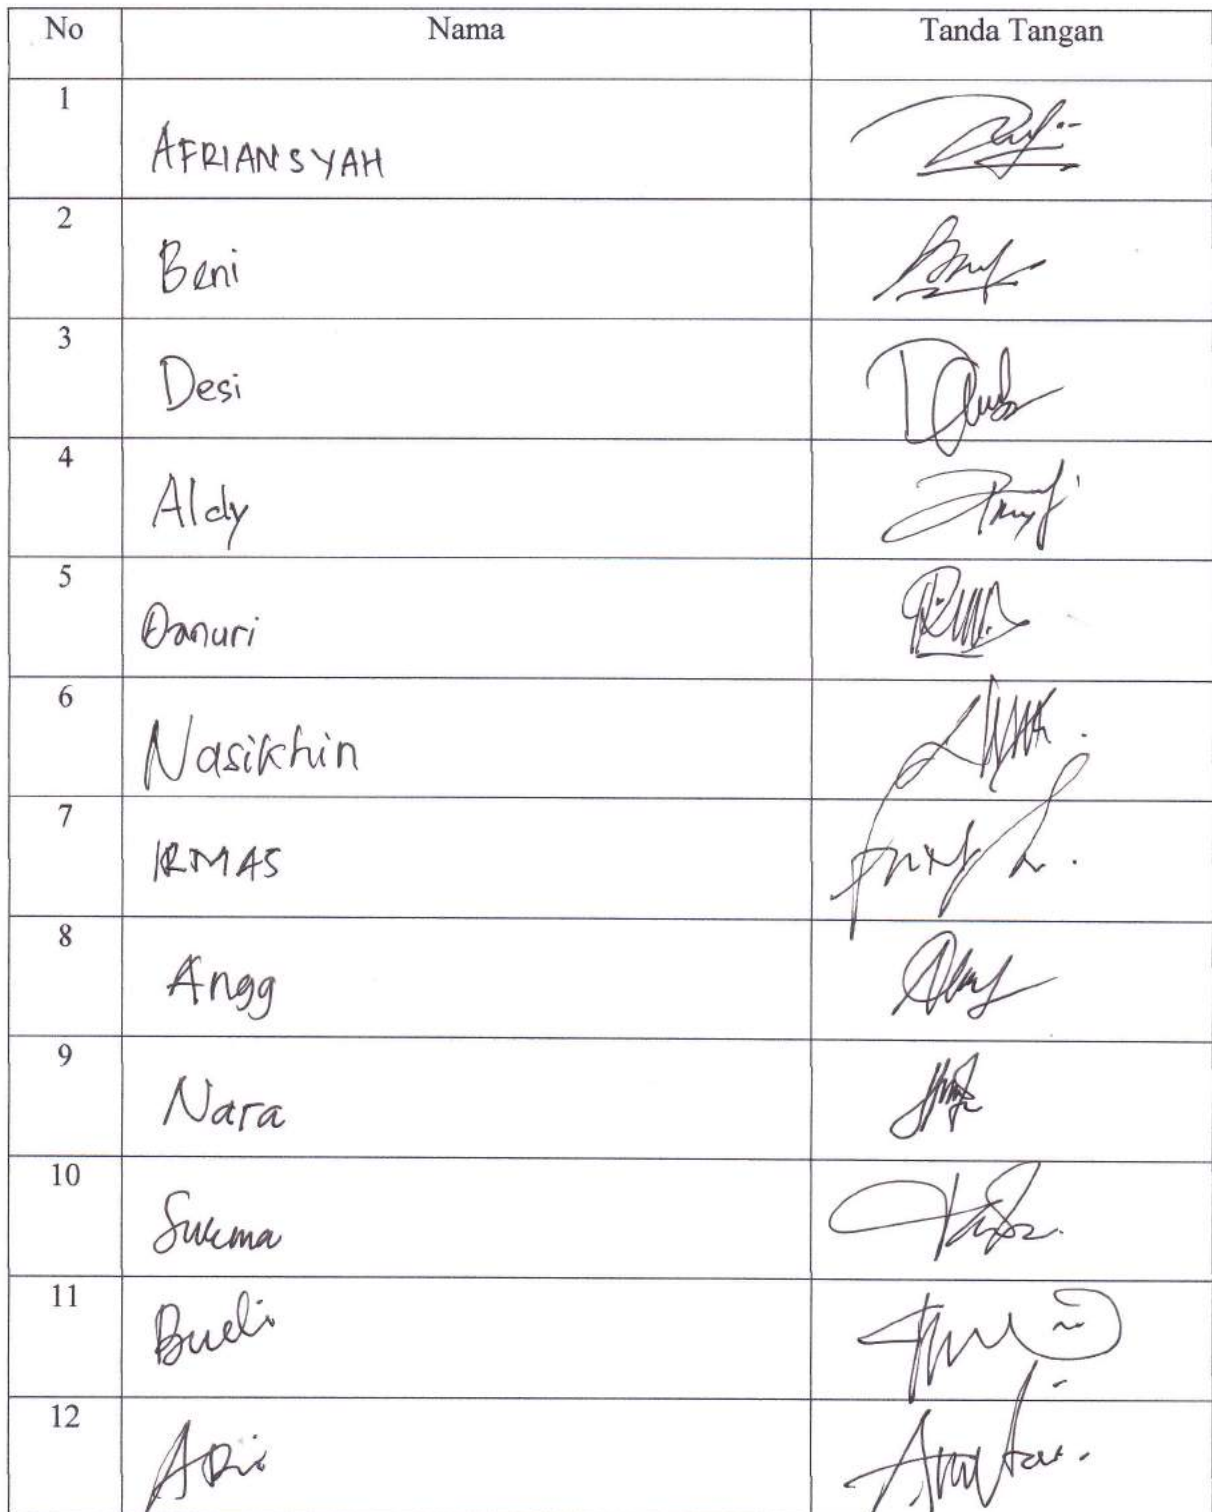 No Nama Tanda Tangan
1 AFRIANSYAH
2 Beni
3 Desi
4 Aldy
5 Danuri
6 Nasikhin
7 IRMAS
8 Angg
9 Nara
10 Sukma
11 Budi
12 ARi